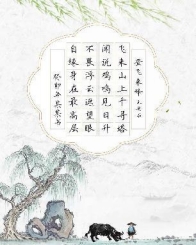 登飞来峰 王安石
飞来山上千寻塔
闻说鸡鸣见日升
不畏浮云遮望眼
自缘身在最高层
癸卯冬